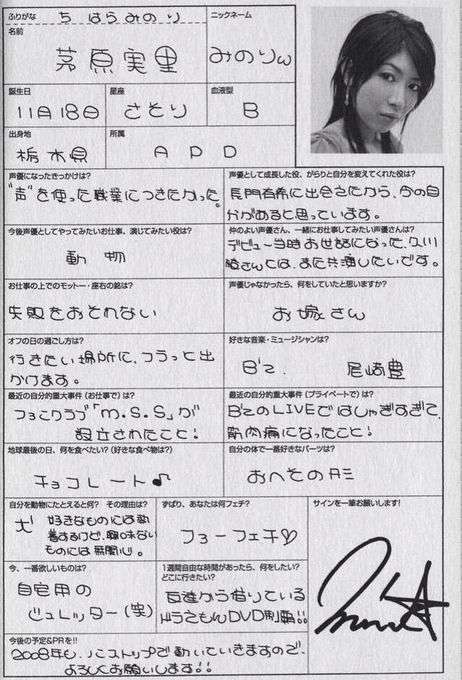 ふりがな
ちはらみのり
ニックネーム
名前
茅原実里
みのりん
誕生日
11月18日
星座
さそり
血液型
B
出身地
栃木県
所属
APD
声優になったきっかけは?
"声"を使った職業につきたかった。
声優として成長した役、がらりと自分を変えてくれた役は?
長門有希に出会えたから、今の自
分があると思っています。
今後声優としてやってみたいお仕事、演じてみたい役は?
動物
仲のよい声優さん、一緒にお仕事してみたい声優さんは?
デビュー当時お世話になった、久川
綾さんとは、また共演したいです。
お仕事の上でのモットー・座右の銘は?
失敗をおそれない
声優じゃなかったら、何をしていたと思いますか?
お嫁さん
オフの日の過ごし方は?
行きたい場所に、フラっと出
かけます。
好きな音楽・ミュージシャンは?
B'z 尾崎豊
最近の自分的重大事件(お仕事で)は?
ファンクラブ「m.s.s」が
設立されたこと!
最近の自分的重大事件(プライベートで)は?
B'zのLIVEではしゃぎすぎて、
筋肉痛になったこと!
地球最後の日、何を食べたい?(好きな食べ物は?)
チョコレート♪
自分の体で一番好きなパーツは?
おへその形
自分を動物にたとえると何? その理由は?
犬 好きなものには執
着するけど、興味ない
ものには無関心。
ずばり、あなたは何フェチ?
フォーフェチ♡
サインを一筆お願いします!
今、一番欲しいものは?
自宅用の
ビュレッター(笑)
1週間自由な時間があったら、何をしたい?
どこに行きたい?
友達から借りている
ドラえもんDVD制覇!!
今後の予定&PRを!!
2008年も、ノンストップで動いていきますので、
よろしくお願いします!!